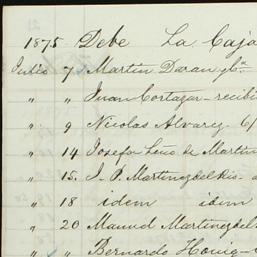 1875 Debe La Caja
Julio 7 Martin Duran y Ca.
" " Juan Cortazar - recibi
" 9 Nicolas Alvarez
" 14 Josefa de Martin
" 15. J. P. Martinez del Rio -
" 18 idem idem
" 20 Manuel Martinez del
" " Bernardo Honig -